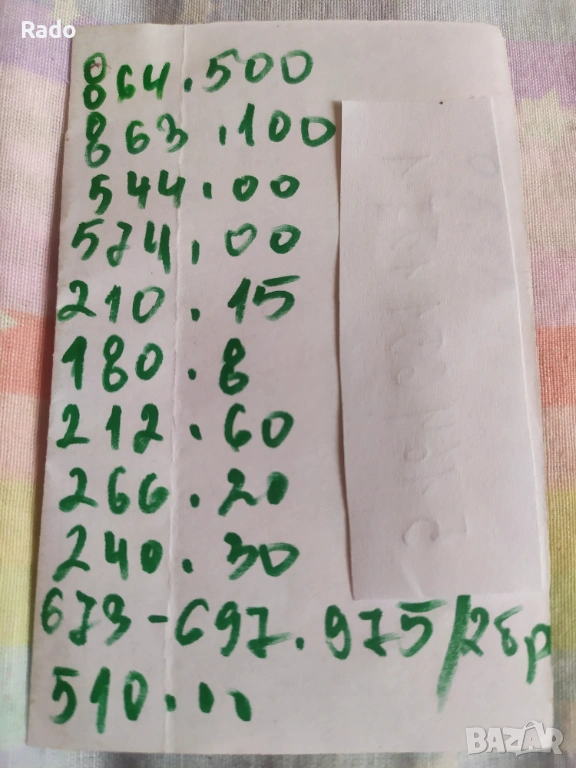 Rado
864.500
863.100
544.00
574.00
210.15
180.8
212.60
266.20
240.30
673-697.975/2бр
510.00
BAZAR